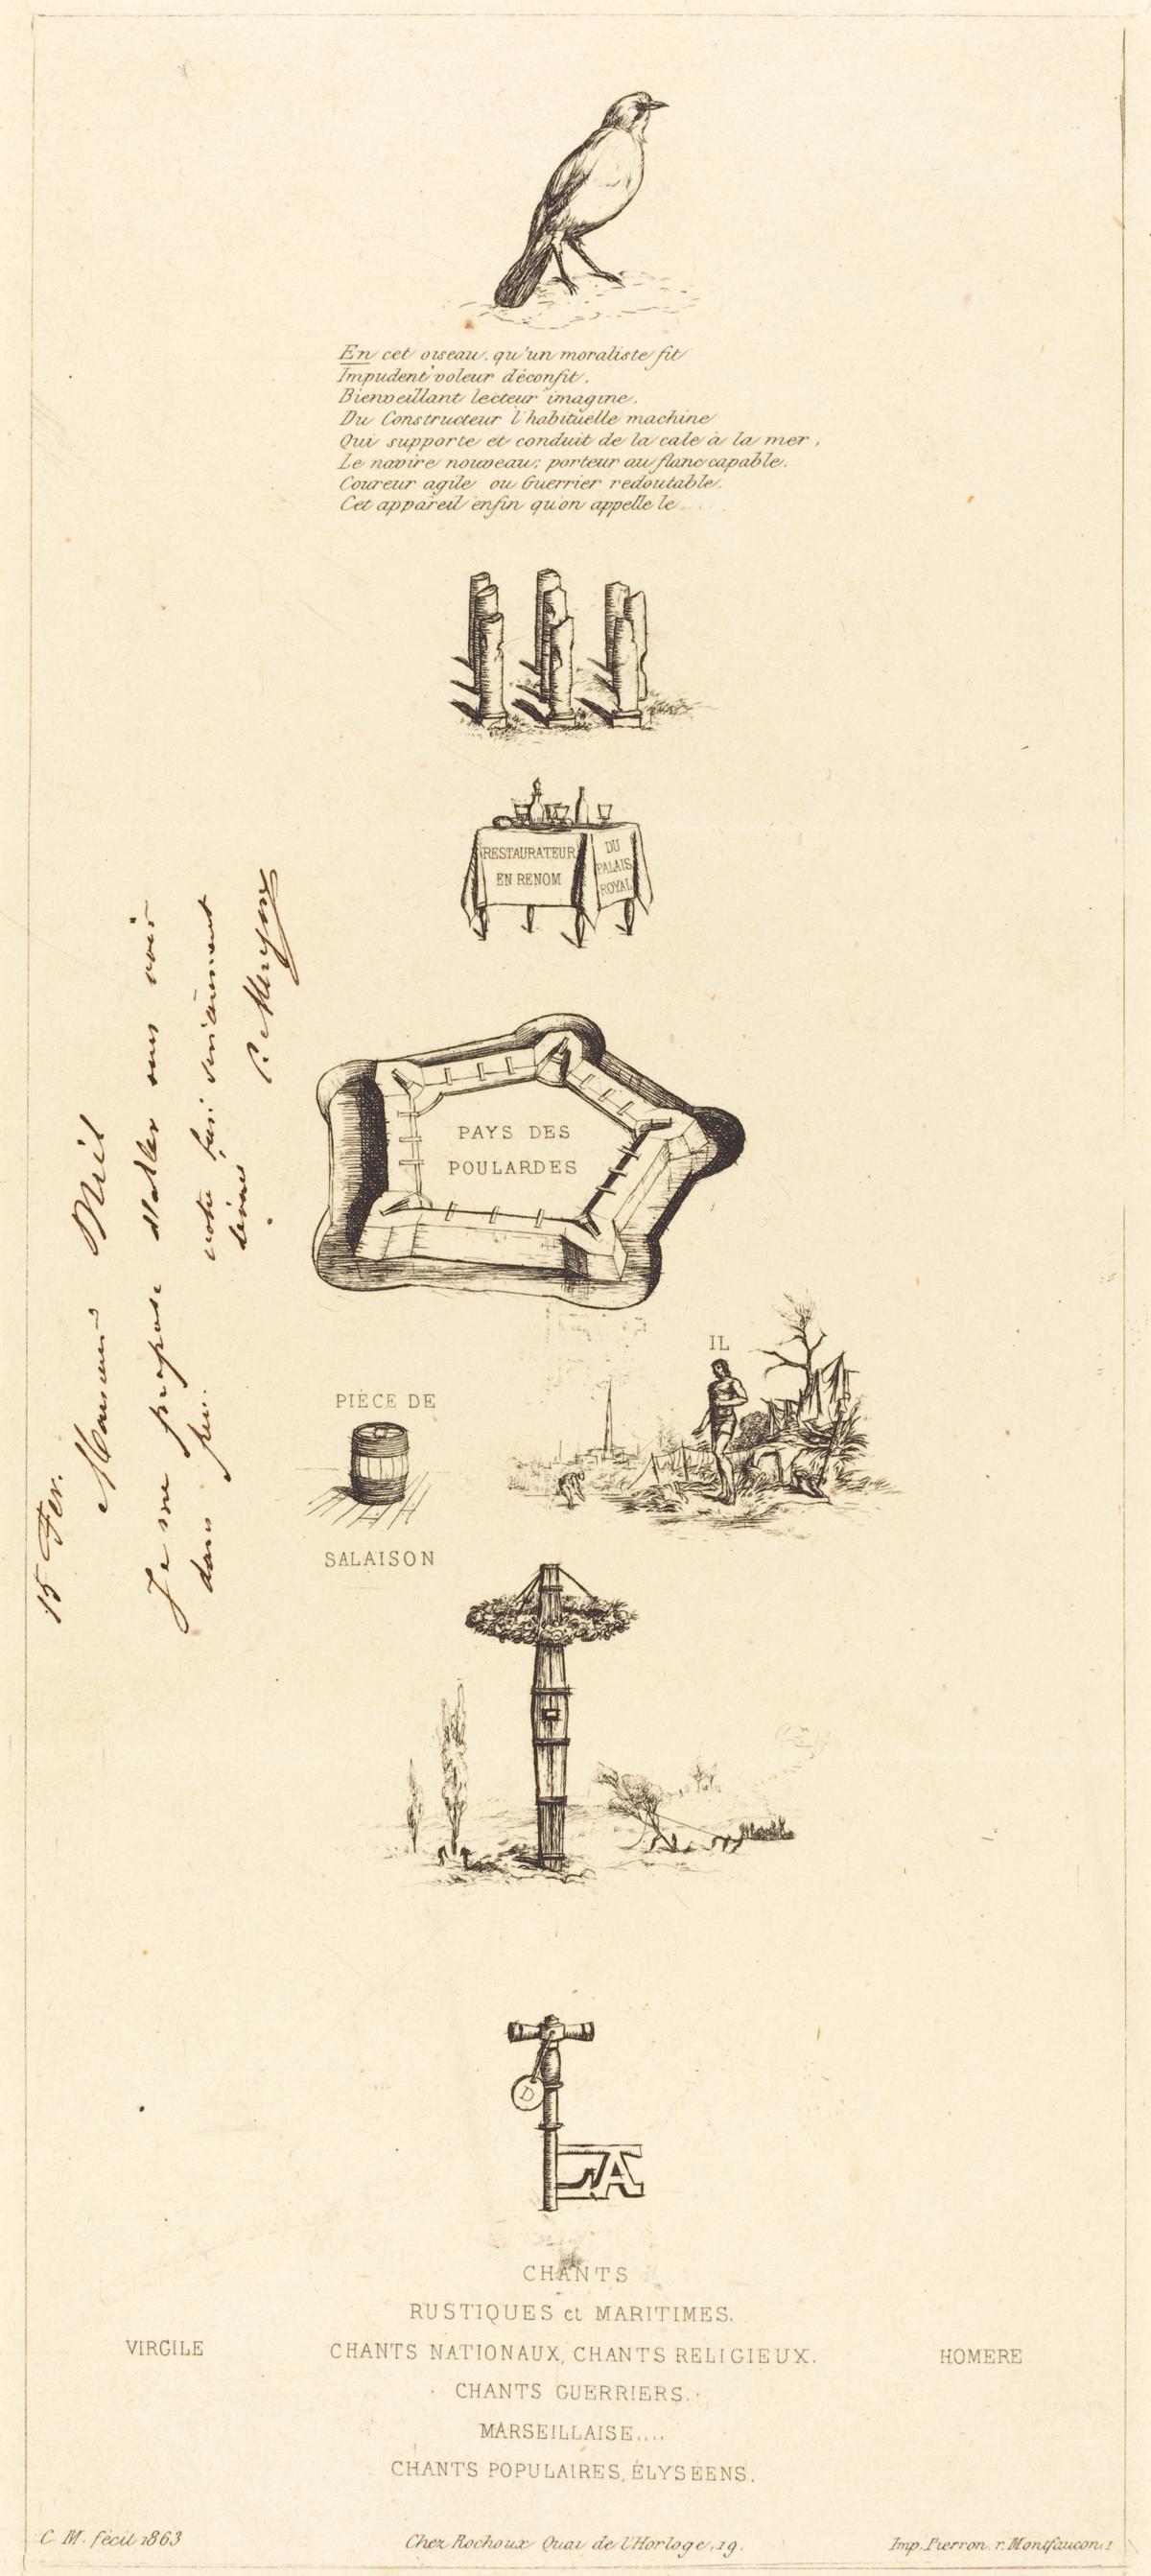 En cet oiseau, qu'un moraliste fit
Impudent voleur déconfit,
Bienveillant lecteur imagine,
Du Constructeur l'habituelle machine
Qui supporte et conduit de la cale à la mer,
Le navire nouveau; porteur au flanc capable,
Coureur agile ou Guerrier redoutable,
Cet appareil enfin qu'on appelle le ....
RESTAURATEUR
EN RENOM
DU
PALAIS
ROYAL
PAYS DES
POULARDES
IL
PIÈCE DE
SALAISON
D
LA
15 Fev.
Monsieur Niel
Je me propose d'aller vous voir
dans peu. votre
C. Meryon
CHANTS
RUSTIQUES et MARITIMES.
VIRGILE
CHANTS NATIONAUX, CHANTS RELIGIEUX.
HOMERE
CHANTS GUERRIERS.
MARSEILLAISE....
CHANTS POPULAIRES, ÉLYSÉENS.
C. M. fécit 1863
Chez Rochoux Quai de l'Horloge, 19.
Imp. Pierron. r. Montfaucon. 1